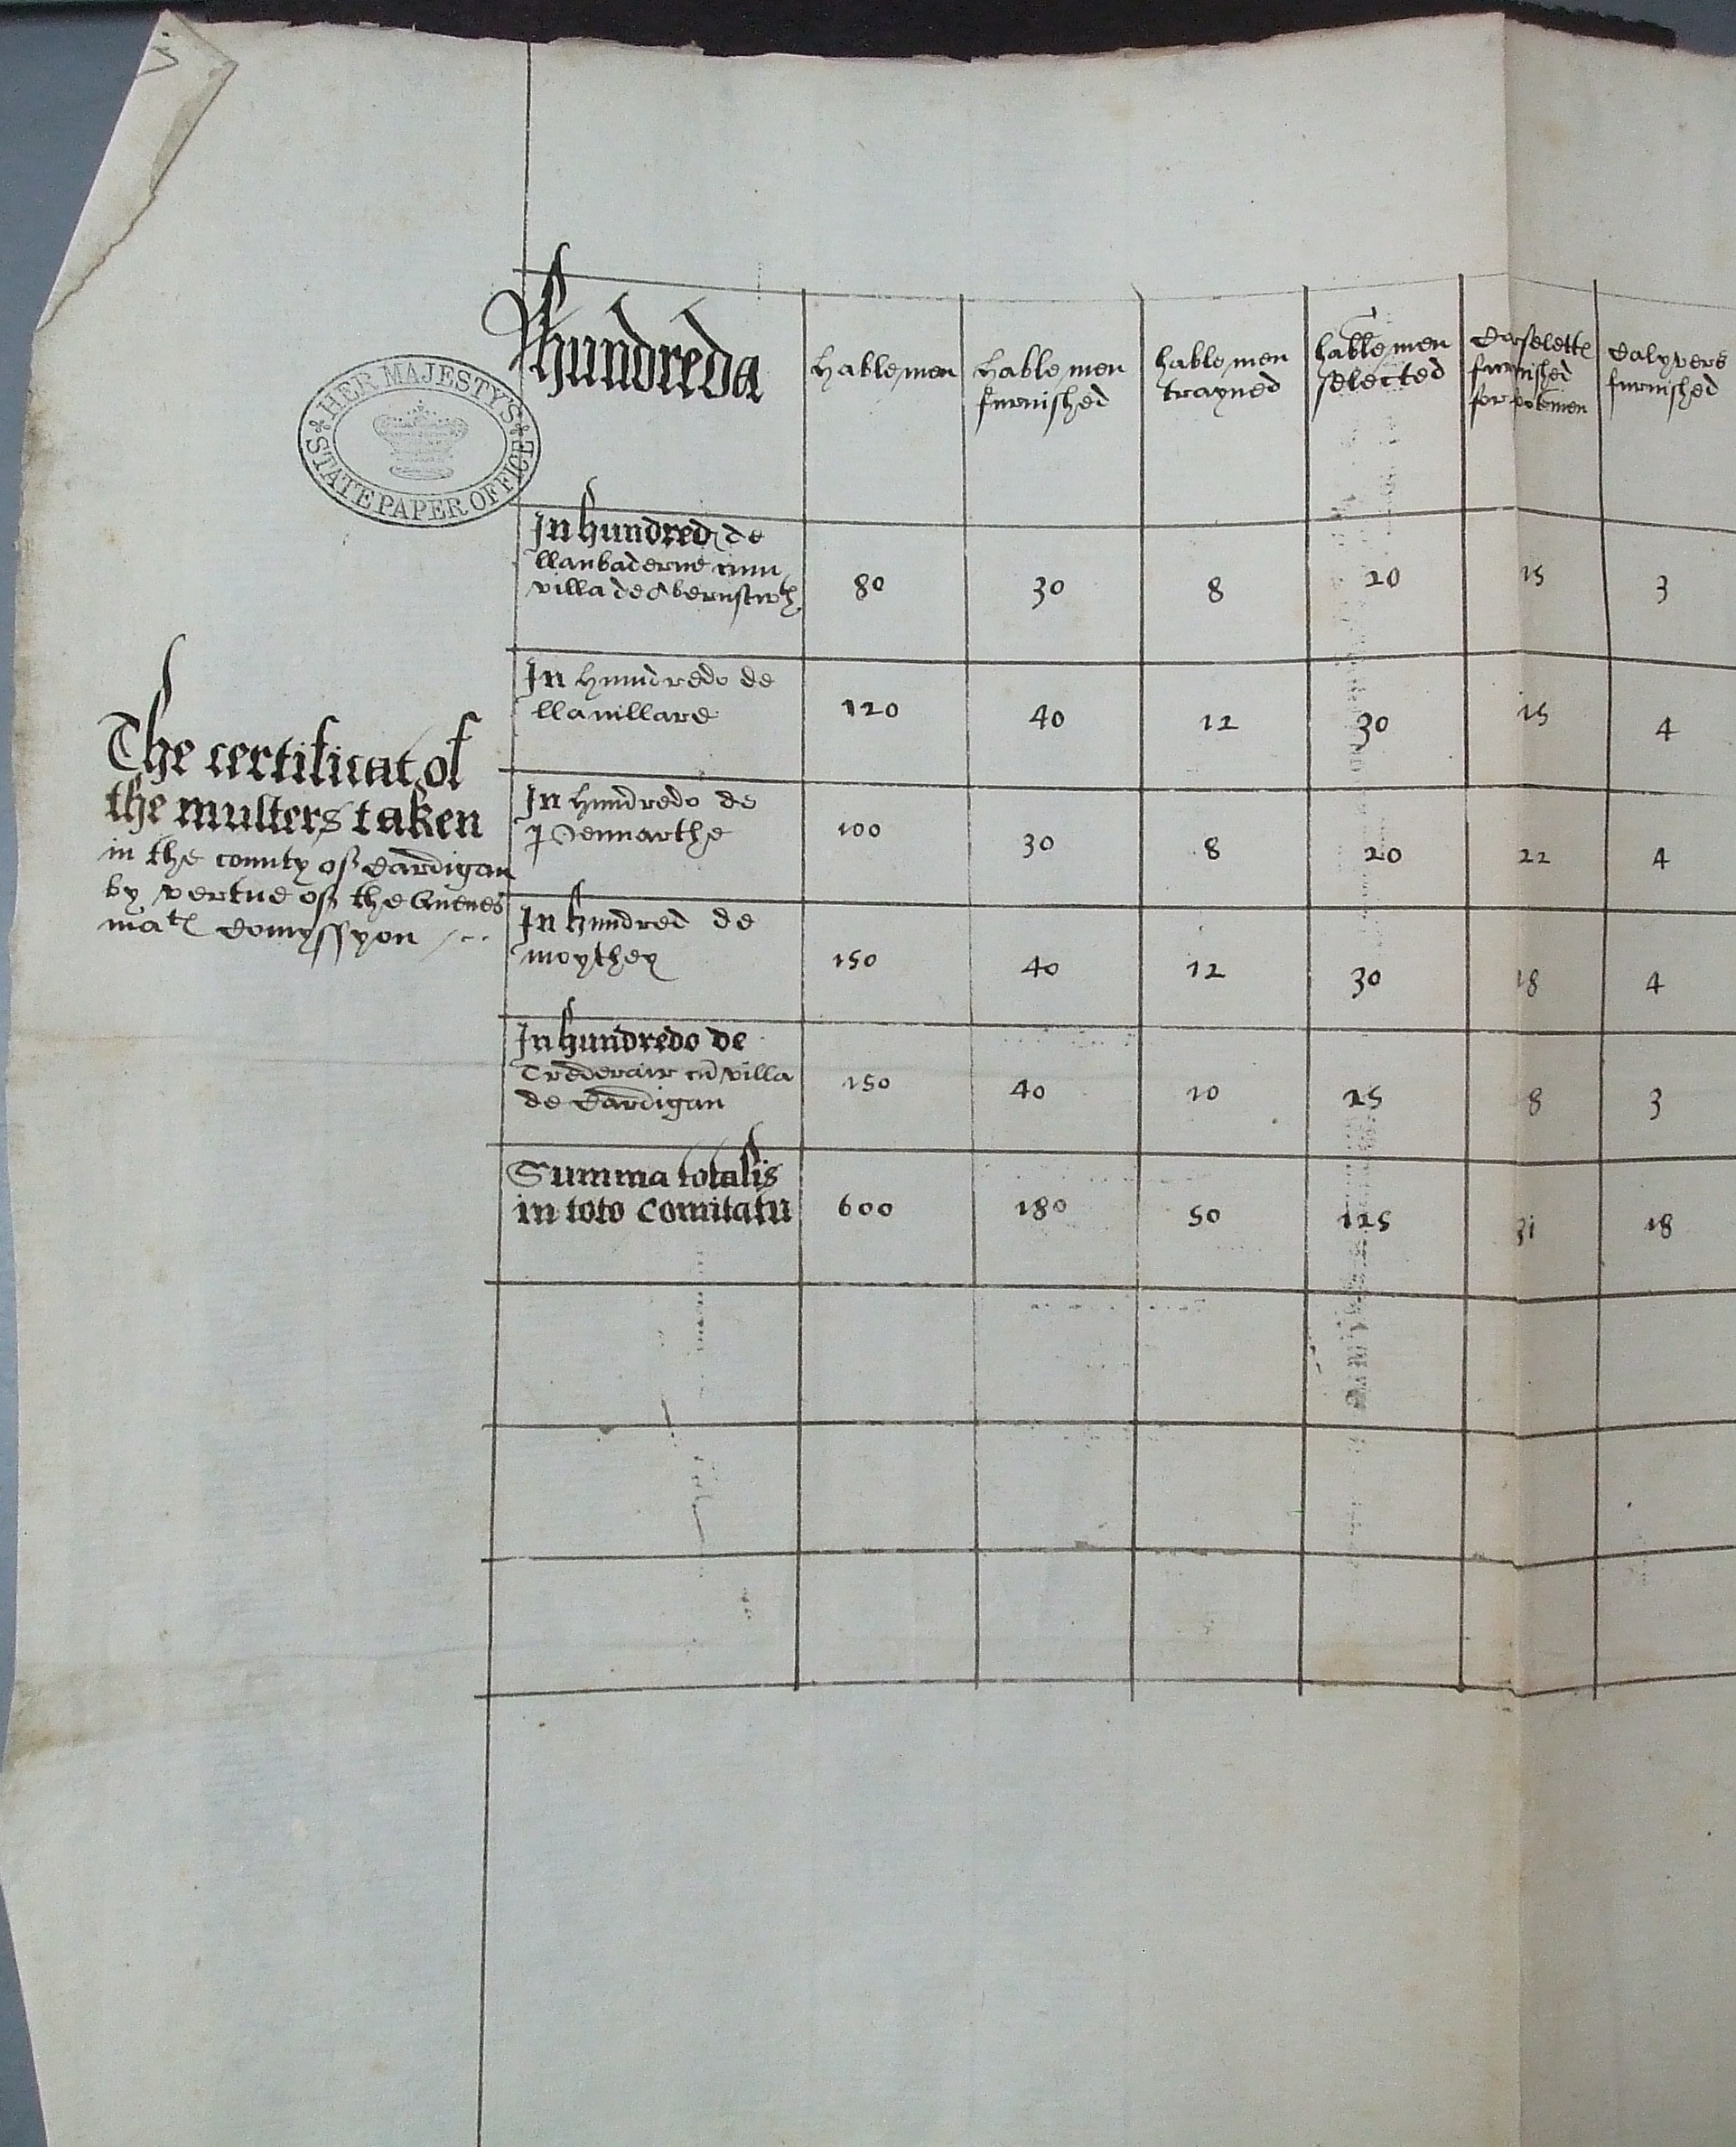 HER MAJESTY'S
STATE PAPER OFFICE
The certificat of
the musters taken
in the county of Cardigan
by vertue of the Quenes
matꝭ Comyssyon
Hundreda
hable men
hable men
furnished
hable men
trayned
hable men
selected
Corselettꝭ
furnished
for pikemen
Calyvers
furnished
In hundred de
llanbaderne cum
villa de Aberustwth
80 30 8 20 15 3
In hundredo de
llanillare
120 40 12 30 15 4
In hundredo de
Pennarthe
100 30 8 20 22 4
In hundred de
moythey
150 40 12 30 18 4
In hundredo de
Trederair cu villa
de Cardigan
150 40 10 25 8 3
Summa totalis
in toto Comitatu
600 180 50 125 18